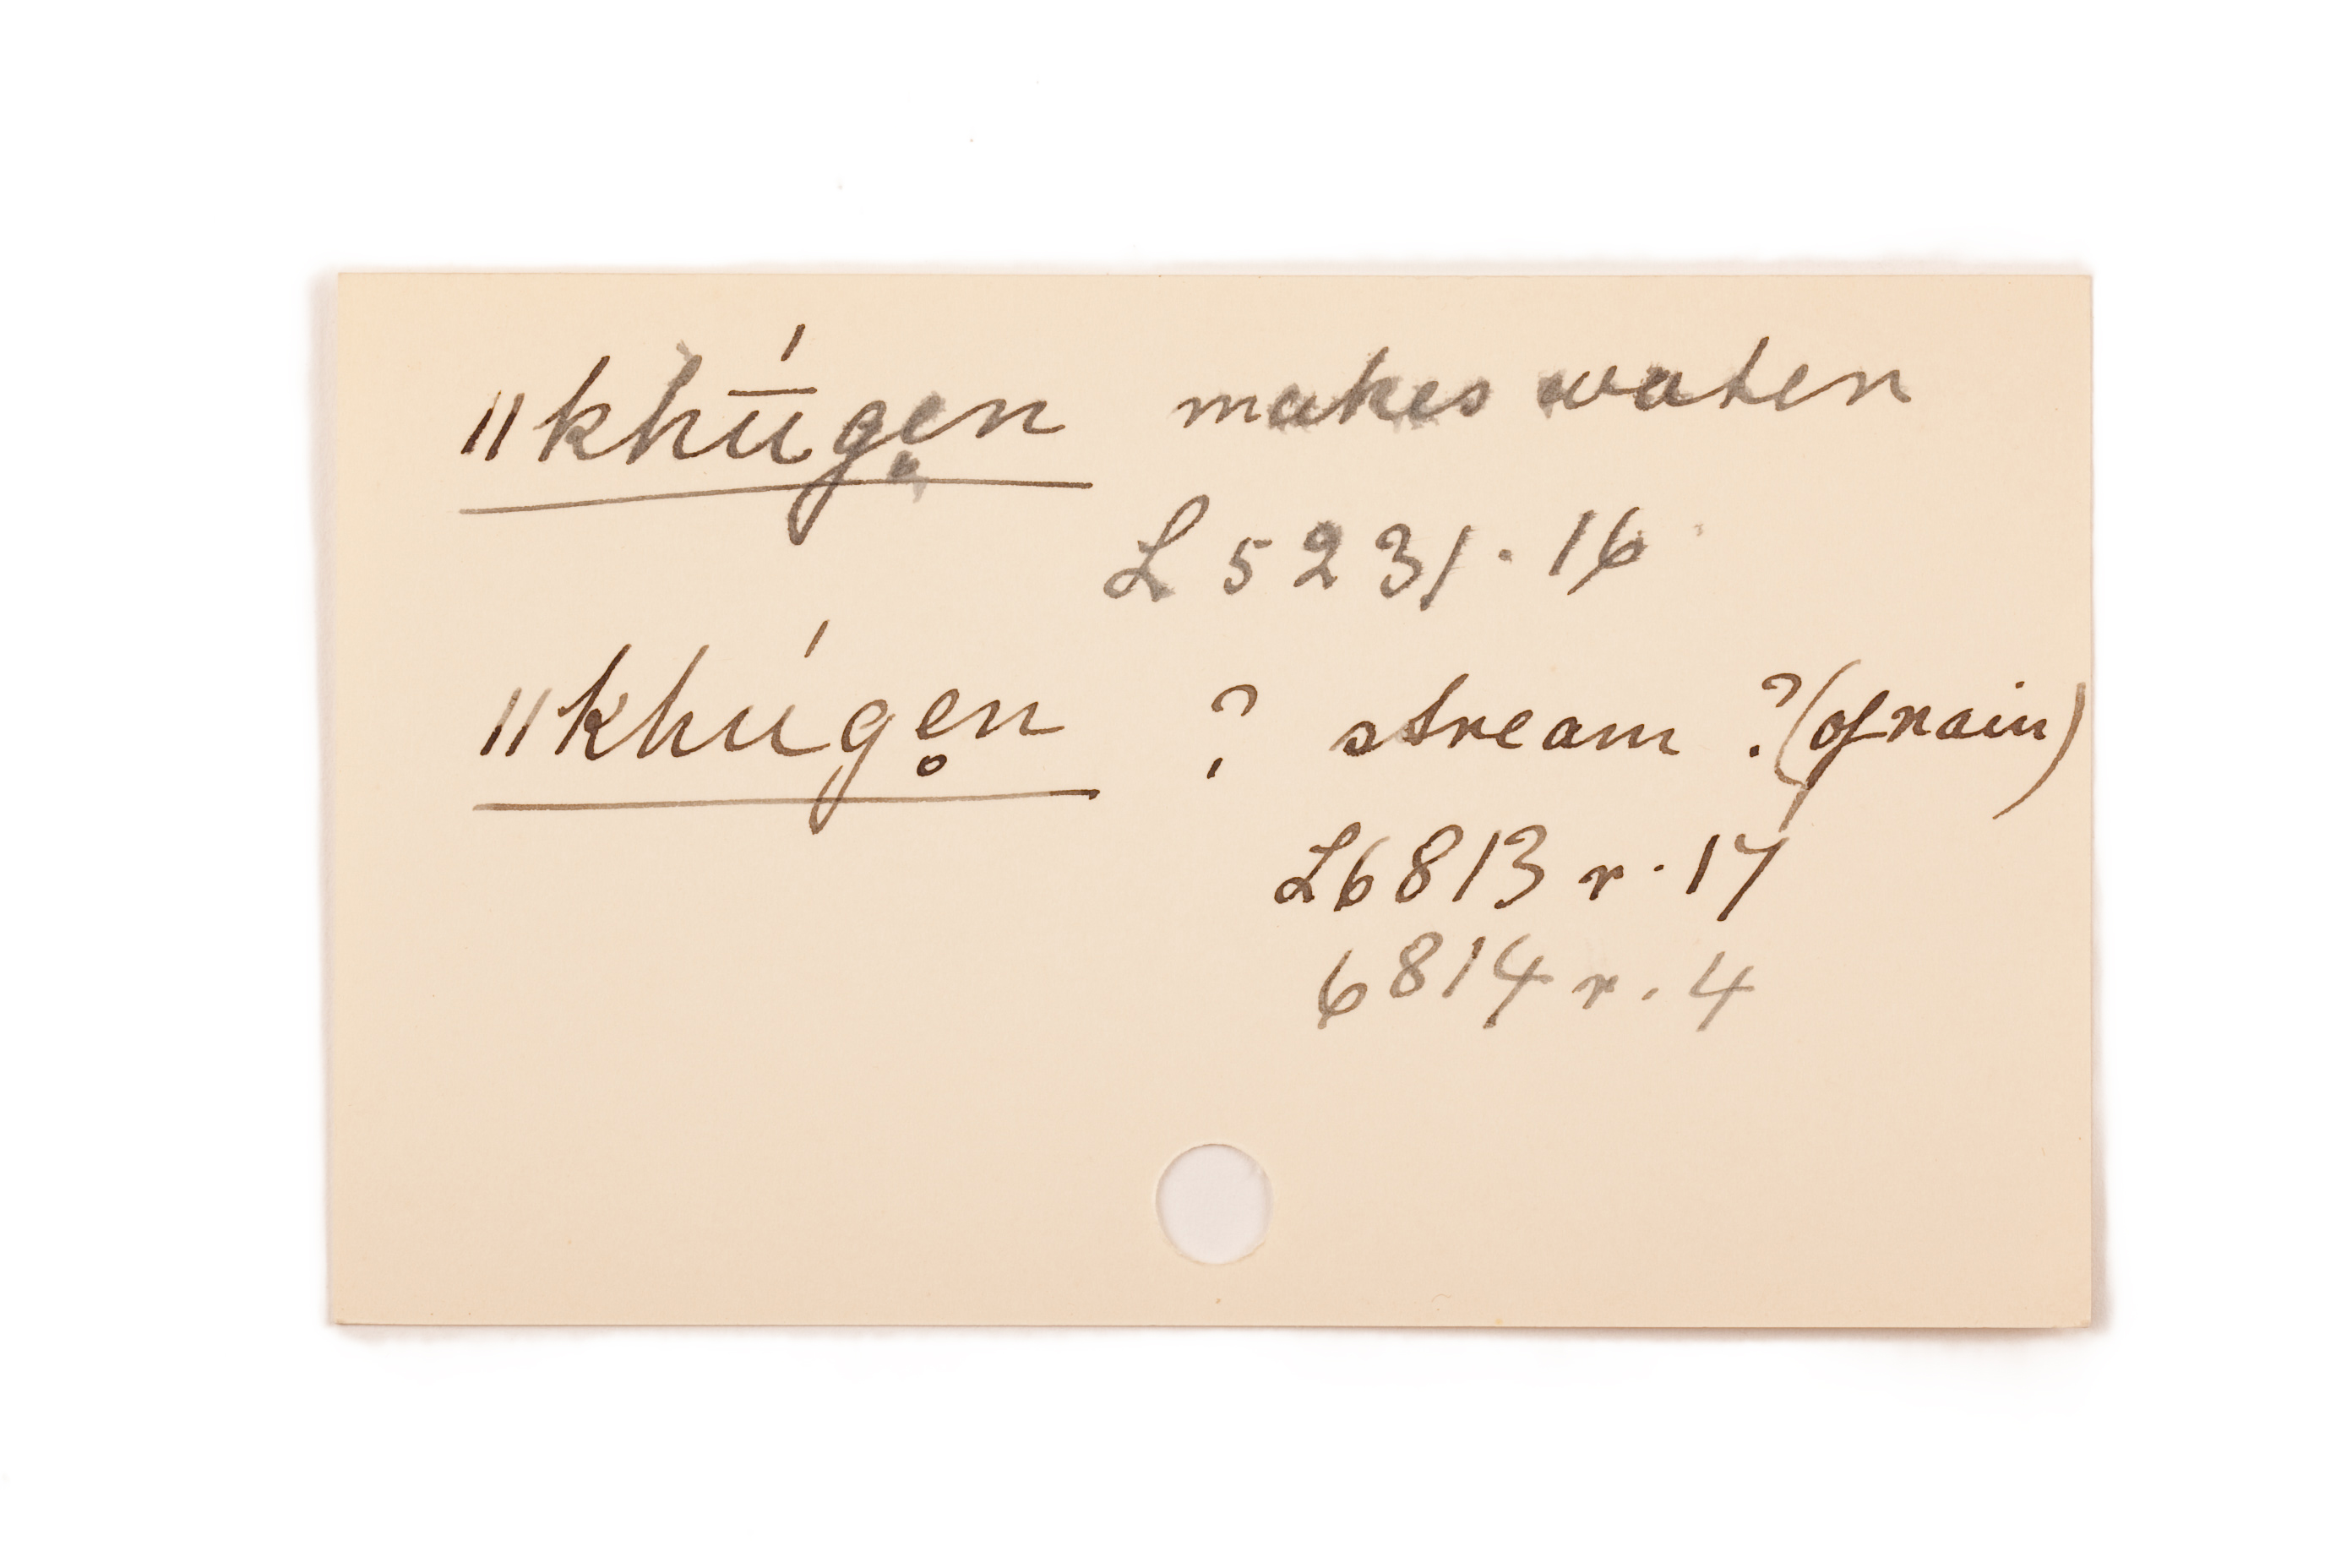 ǁkhū́ge̥n makes water
L 5231. 16
ǁkhúge̥n ? stream ? (of rain)
L6813 r. 17
6814 r. 4